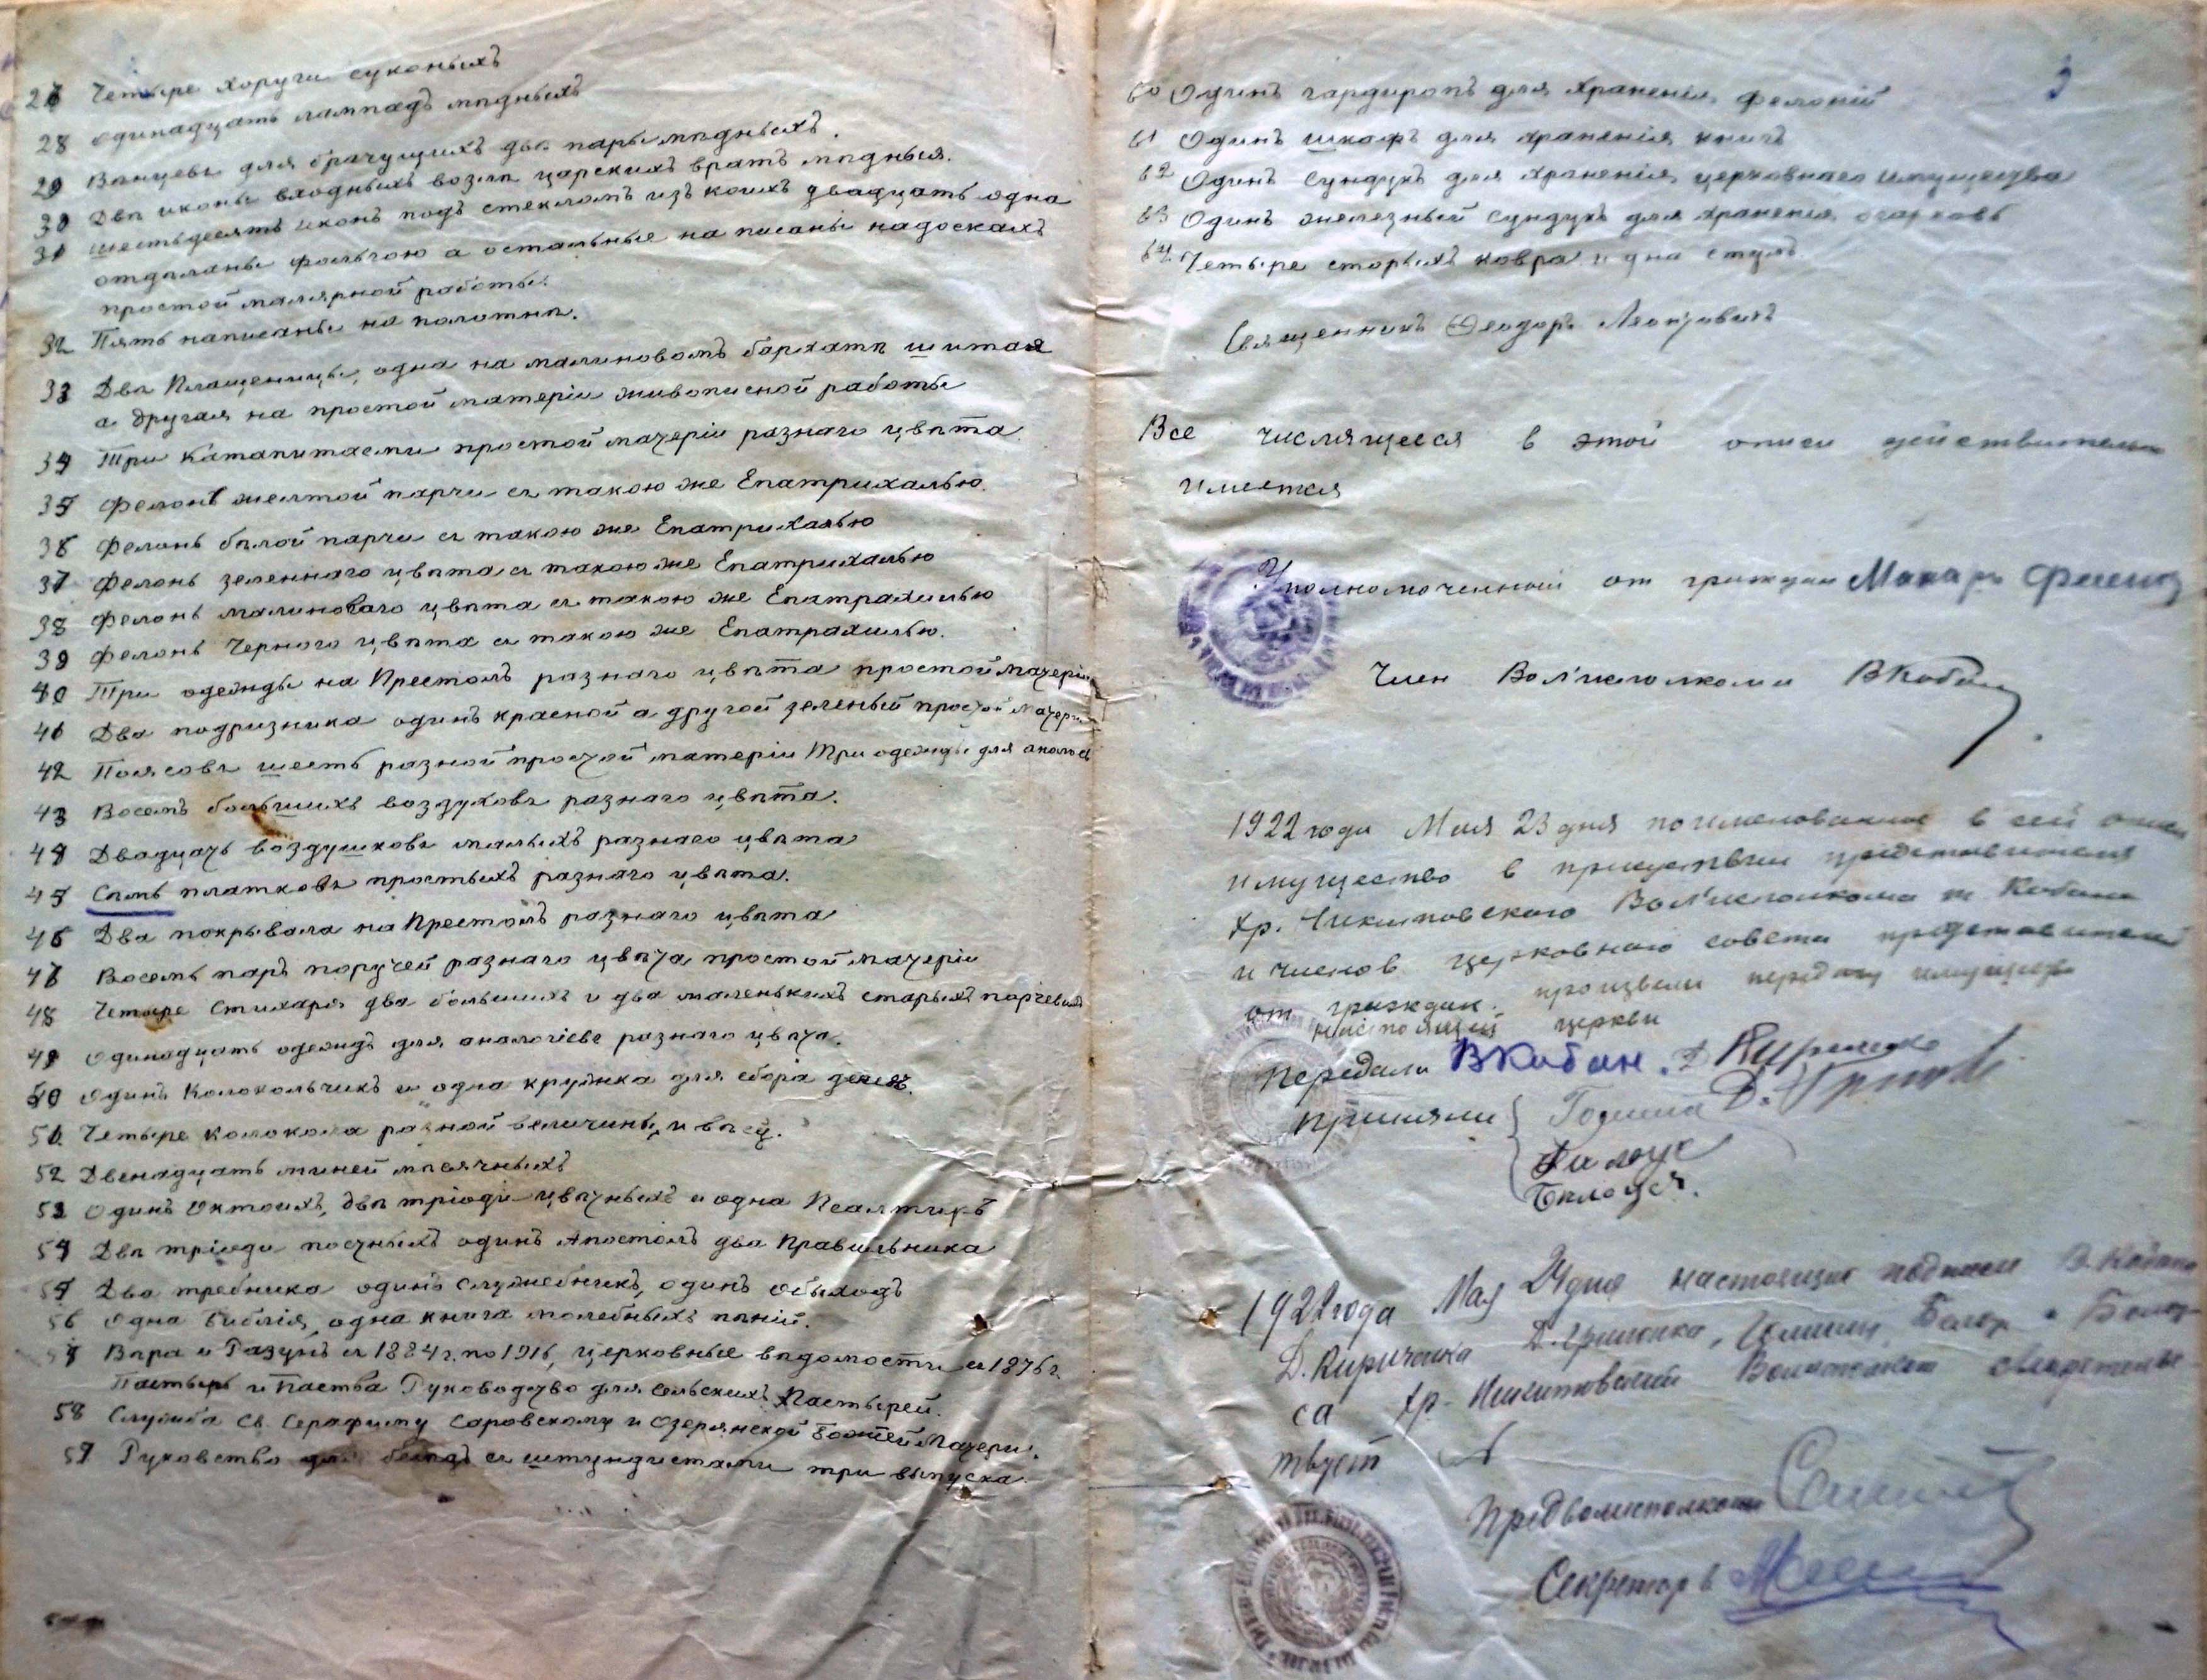 27 Четыре хоругви суконыхъ
28 Одинадцать лампадъ мѣдныхъ
29 Вѣнцевъ для брачущихъ двѣ пары мѣдныхъ.
30 Двѣ иконы входныхъ возлѣ царскихъ вратъ мѣдныя.
31 Шестьдесятъ иконъ подъ стекломъ изъ коихъ двадцать одна
отдѣланы фольгою а остальные написаны на доскахъ
простой малярной работы.
32 Пять написаны на полотнѣ.
33 Двѣ Плащеницы, одна на малиновомъ бархатѣ шитая
а другая на простой матеріи живописной работы
34 Три Катапитасми простой матеріи разнаго цвѣта.
35 Фелонь желтой парчи съ такою же Епатрихалью.
36 Фелонь бѣлой парчи съ такою же Епатрихалью
37 Фелонь зеленнаго цвѣта съ такою же Епатрихалью
38 Фелонь малиноваго цвѣта съ такою же Епатрахилью
39 Фелонь Чернаго цвѣта съ такою же Епатрахилью.
40 Три одежды на Престолъ разнаго цвѣта простой матеріи
41 Два подризника одинъ красной а другой зеленый простой матеріи
42 Поясовъ шесть разной простой матеріи Три одежды для
43 Восемь большихъ воздуховъ разнаго цвѣта.
44 Двадцать воздушковъ малыхъ разнаго цвѣта
45 Сѣмь платковъ простыхъ разнаго цвѣта.
46 Два покрывала на Престолъ разнаго цвѣта
47 Восемь паръ поручей разнаго цвѣта простой матеріи
48 Четыре Стихаря два большихъ и два маленькихъ старыхъ парчевыхъ
49 Одинадцать одеждъ для аналогіевъ разнаго цвѣта.
50 Одинъ Колокольчикъ и одна кружка для сбора денегъ.
51. Четыре колокола разной величины и вѣса.
52 Двенадцать миней мѣсячныхъ
53 Одинъ Октоихъ, двѣ тріоди цвѣтныхъ и одна Псалтирь
54 Двѣ тріоди постныхъ одинъ Апостолъ два Правильника
55 Два требника одинъ служебникъ, одинъ Обыходъ
56 Одна Библія, одна книга молебныхъ пѣній.
57 Вѣра и Разумъ съ 1884 г. по 1916, церковные вѣдомости съ 1876 г.
Пастырь и Паства Руководство для сельскихъ Пастырей.
58 Служба Св. Серафиму Саровскому и Озерянской Божіей Матери.
59 Руковство для бесѣдъ съ штундистами три выпуска.
3
60 Одинъ гардиропъ для храненія фелоній
61 Одинъ шкафъ для храненія книгъ
62 Одинъ сундукъ для храненія церковнаго имущества
63 Одинъ железный сундукъ для храненія огарковъ
64. Четыре старыхъ ковра и два стула.
Священникъ Ѳеодоръ
Все числящееся в этой описи действительно
имеется
Уполномоченный от граждан Макар
Член Волисполкома ВКобан
1922 года Мая 23 дня поименованное в сей описи
имущество в присутствии представителя
Хр. Никитовского Волисполкома т Кобана
и членов церковного совета представителей
от граждан. произвели передачу имущества
настоящей церкви
Передали ВКобан. Д Кириченко
Приняли Гомина Д.
Билоус
Белоус.
1922 года Мая 24 дня настоящие подписи В. Кобана
Д. Кириченка Д. Гришенка,
са Хр. Никитовский Волисполком свидетельс
твует №
Предволисполкома
Секретарь